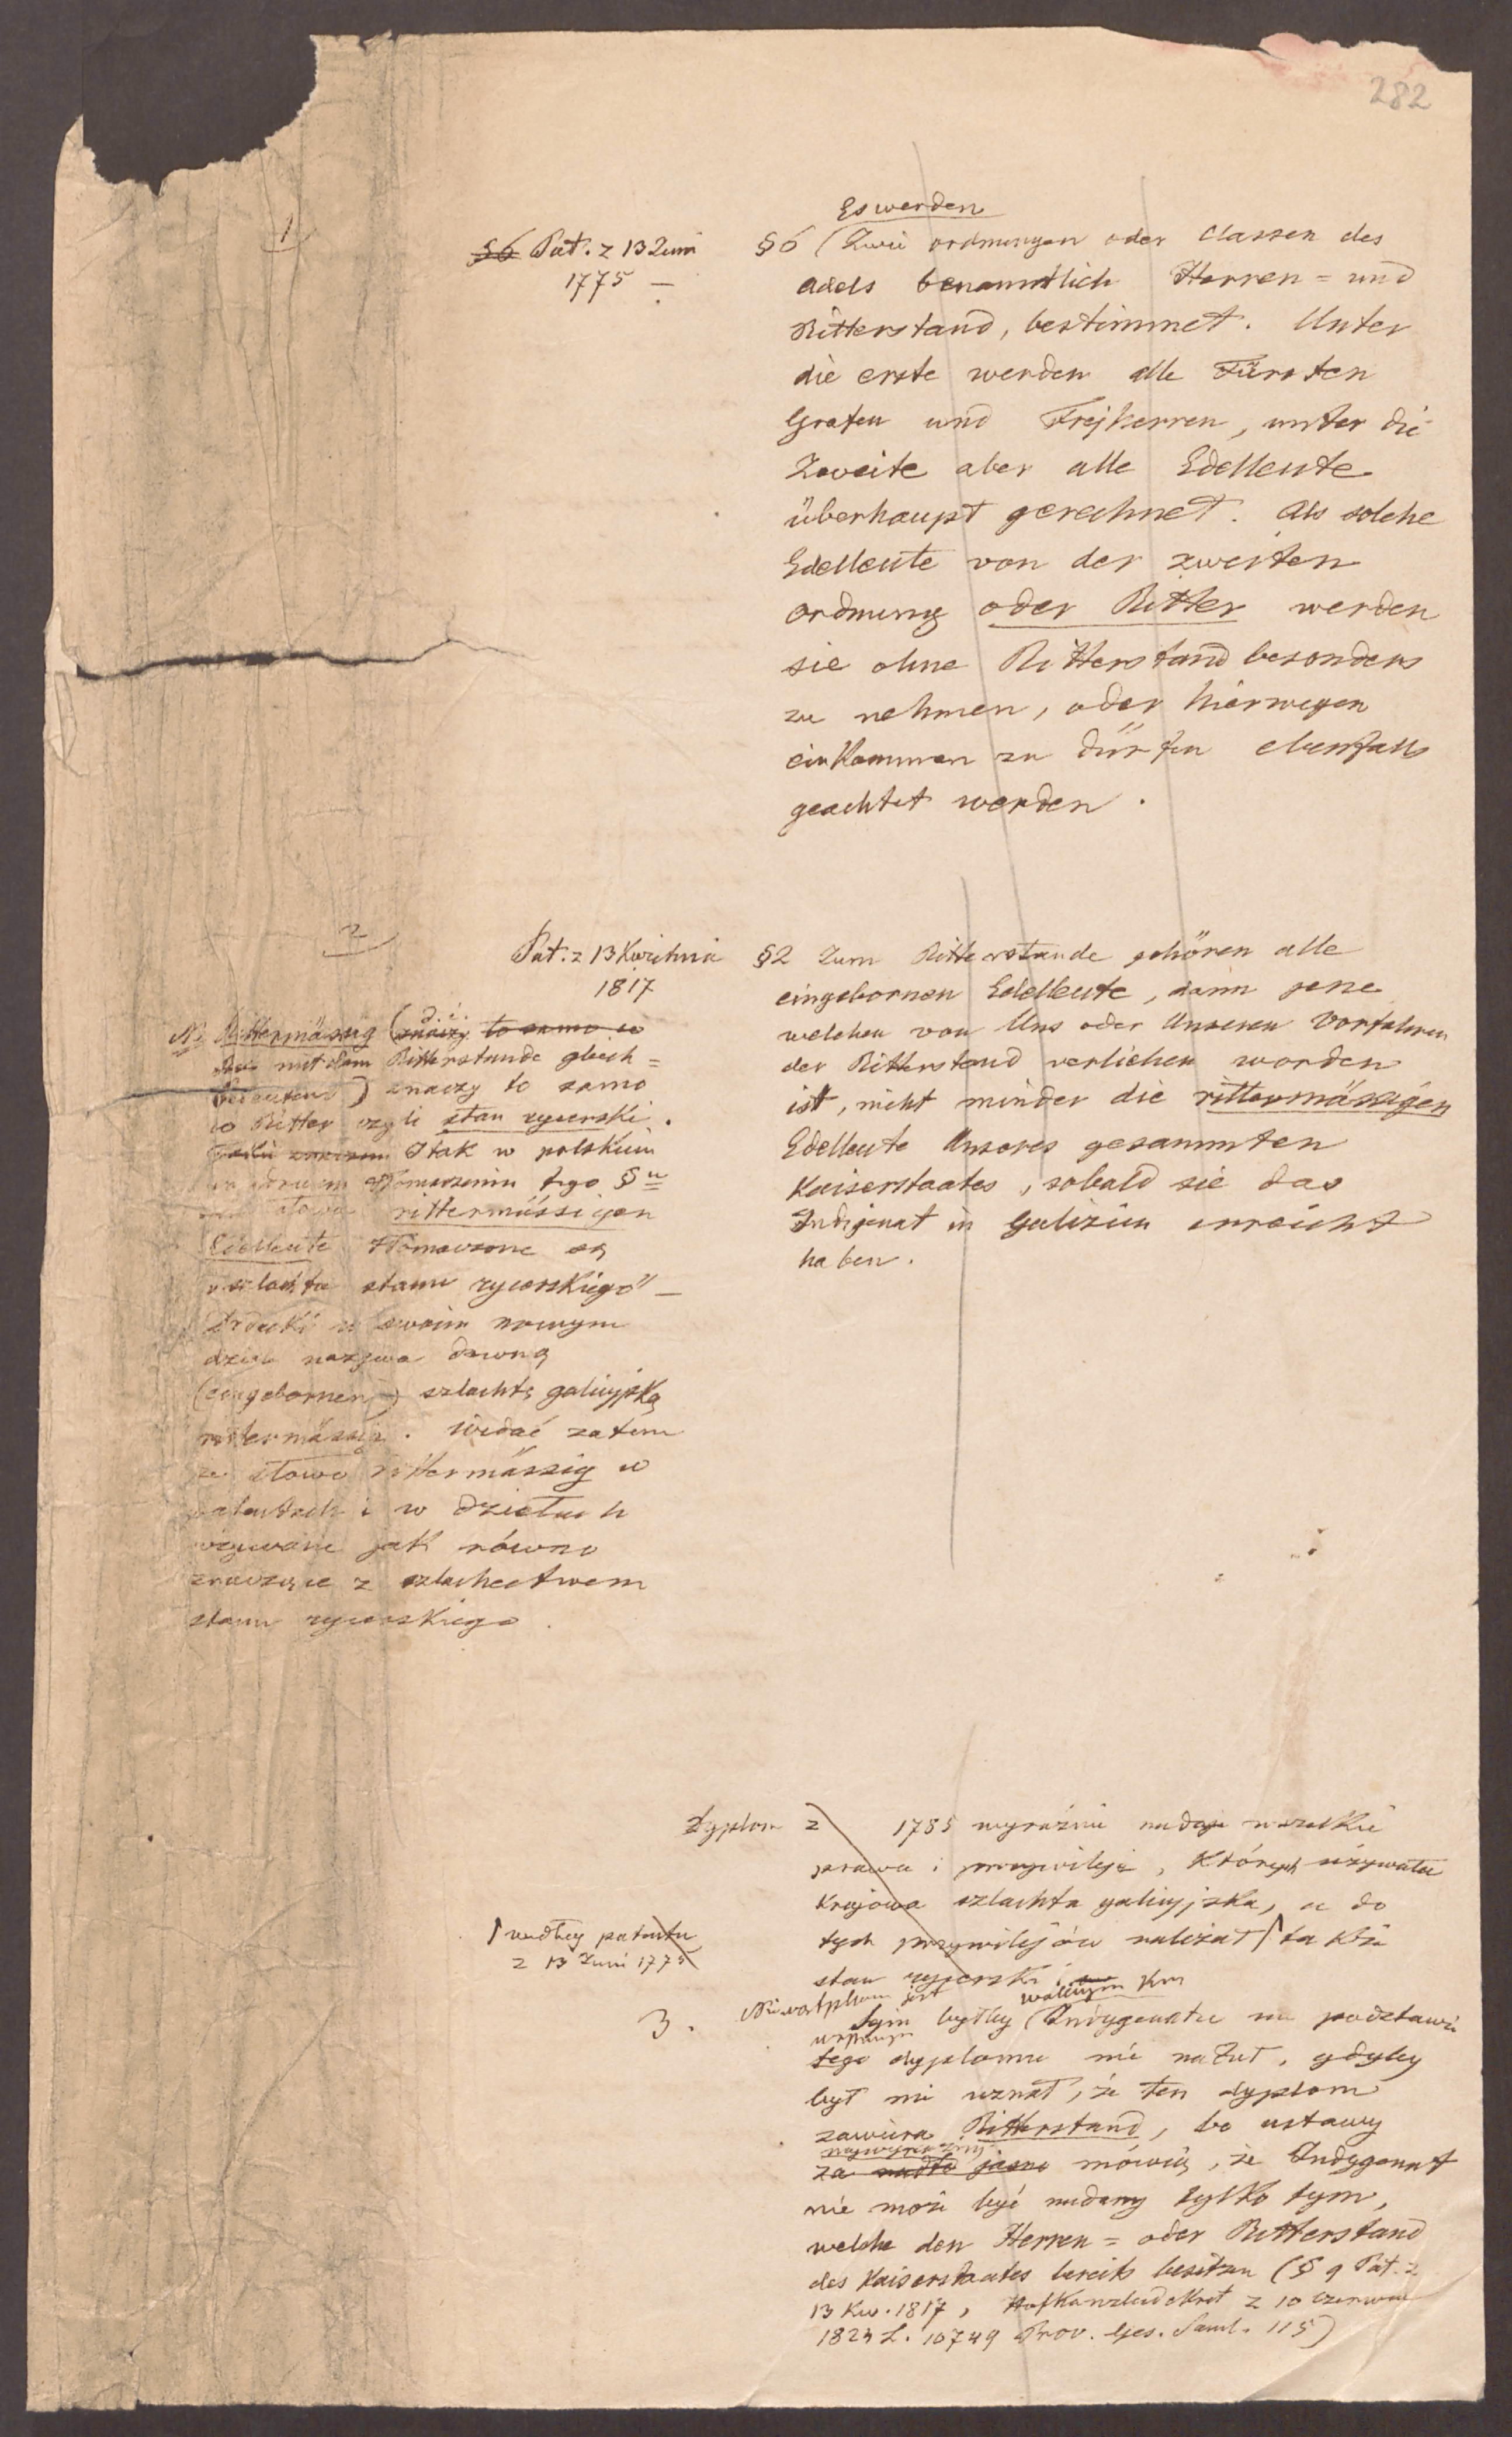 282
1
§6 Pat. z 13 Juni
1775 –
Es werden
§6 (Zwei ordnungen oder Classen des
adels benanntlich Herren = und
Ritterstand, bestimmet. Unter
die erste werden alle Fürsten
Grafen und Frejherren, unter die
Zweite aber alle Edelleute
überhaupt gerechnet. Als solche
Edelleute von der zweiten
ordnung oder Ritter werden
sie ohne Ritterstand besonders
zu nehmen, oder hierwegen
einkommen zu dürfen ebenfalls
geachtet werden.
2
Pat. z 13 Kwietnia
1817
§2 Zum Ritterstande gehören alle
eingebornen Edelleute, dann jene
welchen von Uns oder Unseren Vorfahren
der Ritterstand verliehen worden
ist, nicht minder die rittermässigen
Edelleute Unseres gesammten
Kaiserstaates, sobald sie das
Indigenat in Galizien erreicht
haben.
d. i.
Rittermässig (znaczy to samo co
mit dem Ritterstande gleich =
bedeutend) znaczy to samo
co Ritter czyli stan rycerski.
I tak w polskim
tłomaczeniu tego §u
słowa rittermässigen
Edelleute tłomaczone są
"szlachta stanu rycerskiego" –
w swoim nowym
dziele nazywa dawną
(eingebornen) szlachtę galicyjską
rittermässig. Widać zatem
że słowo rittermässig w
patentach i w dziełach
używane jak równo
znaczące z szlachectwem
stanu rycerskiego.
Dyplom z 1785 wyraźnie nadaje wszelkie
prawa i przywileje, których używała
krajowa szlachta galicyjska, a do
tych przywilejów należał także
stan rycerski
według patentu
z 13 Juni 1775
3.
Niewątpliwem jest
walnym
Sejm byłby Indygenatu na podstawie
tego dyplomu nie nadał, gdyby
był nie uznał, że ten dyplom
zawiera Ritterstand, bo ustawy
najwyraźniej
za nadto jasno mówią, że Indygenat
nie może być nadany tylko tym,
welche den Herren = oder Ritterstand
des Kaiserstaates bereits besitzen (§ 9 Pat. z
13 Kw. 1817, Hofkanzleidekret z 10 czerwca
1824 L. 10749 Prov. Ges. Saml. 115)